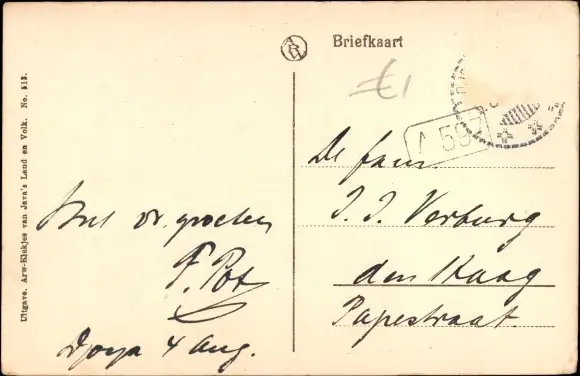 Briefkaart
€1
A 597
De fam.
J. J. Verburg
den Haag
Papestraat.
Met vr. groeten
F. Pot
Djoya 4 Aug.
Uitgave. Arw-Kiekjes van Java's Land en Volk. No. 513.